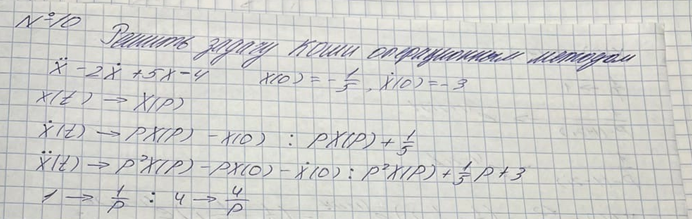 №10
Решить задачу Коши операционным методом
ẍ - 2ẋ + 5x - 4    x(0) = -1/5, ẋ(0) = -3
x(t) → X(p)
ẋ(t) → pX(p) - x(0) : pX(p) + 1/5
ẍ(t) → p²X(p) - px(0) - ẋ(0) : p²X(p) + 1/5 p + 3
1 → 1/p : 4 → 4/p